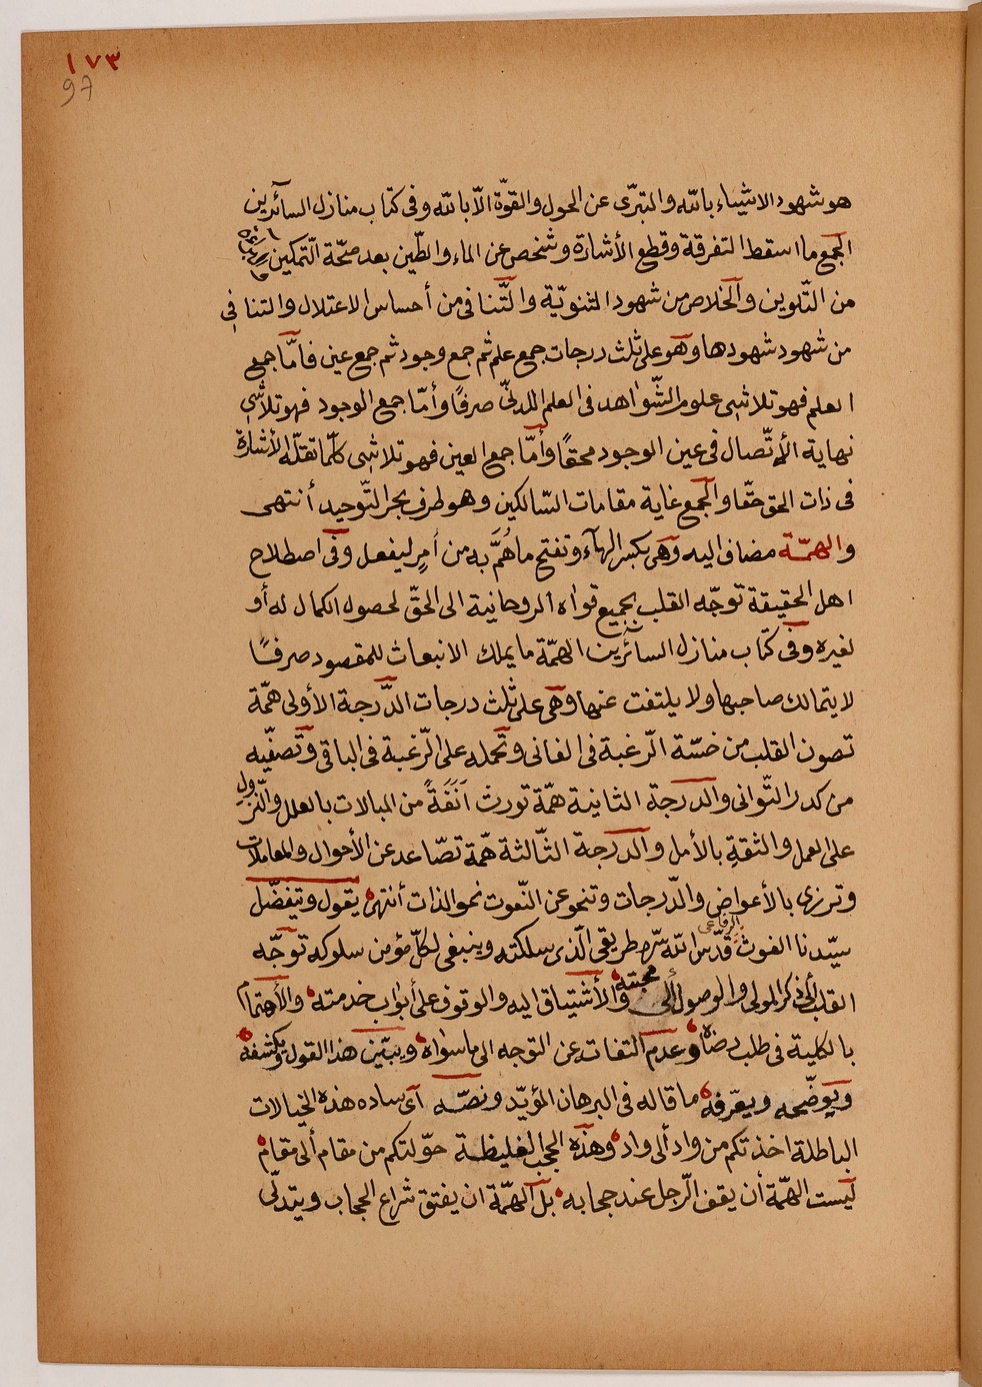 ١٧٣
97
هو شهود الاشياء بالله والتبرّى عن الحول والقوّة الاّ بالله وفى كتاب منازل السآئرين
الجمع ما اسقط التفرقة وقطع الأشارة وشخص عن الماء والطّين بعد صحّة التّمكين
من التّلوين والخلاص من شهود الثنويّة والتّنافى من أحساس الاعتلال والتنافِى
من شهود شهودها وهو على ثلث درجات جمع علم ثم جمع وجود ثم جمع عين فامّا جمع
العلم فهو تلاشى علوم الشّواهد فى العلم اللدنّى صرفًا وأمّا جمع الوجود فهو تلاشى
نهاية الأتّصال فى عين الوجود محقًا وأمّا جمع العين فهو تلاشى كلّما تقلّه الأشارة
فى ذات الحق حقًّا والجمع غاية مقامات السّالكين وهو طرف بحر التّوحيد أنتهى
والهمّة مضاف اليه وهى بكسر الهآء وتفتح ما هُمَّ به من أمرٍ ليفعل وفى اصطلاح
اهل الحقيقة توجّه القلب بجميع قواه الروحانية الى الحقّ لحصول الكمال له أو
لغيره وفى كتاب منازل السآئرين الهمّة ما يملك الانبعاث للمقصود صرفًا
لا يتمالك صاحبها ولا يلتفت عنها وهى على ثلث درجات الدّرجة الأولى همّة
تصون القلب من خسّة الرّغبة فى الفانى وتحمله على الرّغبة فى الباقى وتصفّيه
من كدر التّوانى والدرجة الثانية همّة تورث اَنَفَةً من المبالات بالعلل والنّزول
على العمل والثقةِ بالأمل والدرجة الثّالثة همّة تصّاعد عن الأحوال والمعاملات
وتزرى بالأعواض والدّرجات وتنحو عن النّعوت نحو الذات أنتهى يقول ويتفضّل
سيّدنا الغوث الرفاعى قدّس الله سّره طريقى الّذى سلكته وينبغى لكلّ مؤمن سلوكه توجّه
القلب الى ذكر المولى والوصول الى محبته والأشتياق اليه والوقوف على أبواب خدمته والأهتمام
بالكلية فى طلب رضاه وعدم التفات عن التوجه الى ما سواه ويبيّن هذا القول ويكشفه
ويوضّحه ويعرّفه ما قاله فى البرهان المؤيّد ونصّه آى ساده هذه الخيالات
الباطلة اخذتكم من واد ألى واد وهذه الحجب الغليظة حوّلتكم من مقام ألى مقام
ليست الهمّة أن يقف الرّجل عند حجابه بل الهمّة ان يفتق شراع الحجاب ويتدلّى